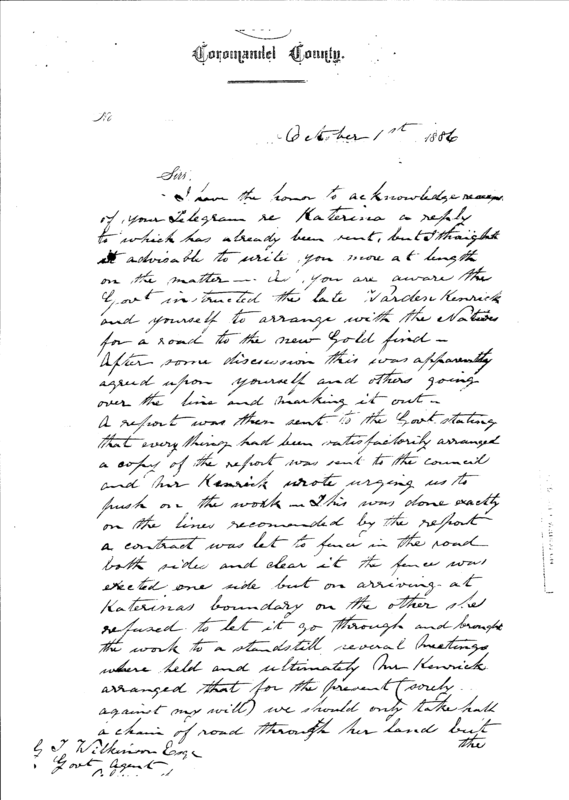 Coromandel County.
No
October 1st 1886
Sir,
I have the honor to acknowledge
of your Telegram re Katerina a reply
to which has already been sent, but I thought
it advisable to write you more at length
on the matter — As you are aware the
Govt instructed the late Warden Kenrick
and yourself to arrange with the Natives
for a road to the new Gold find —
After some discussion this was apparently
agreed upon yourself and others going
over the line and marking it out —
A report was then sent to the Govt stating
that every thing had been satisfactorily arranged
a copy of the report was sent to the council
and Mr Kenrick wrote urging us to
push on the work — This was done exactly
on the lines recomended by the report
a contract was let to fence in the road
both sides and clear it the fence was
erected one side but on arriving at
Katerinas boundary on the other she
refused to let it go through and brought
the work to a standstill several meetings
where held and ultimately Mr Kenrick
arranged that for the present (sorely
against my will) we should only take half
a chain of road through her land but
the
G T Wilkinson Esqr
Govt Agent